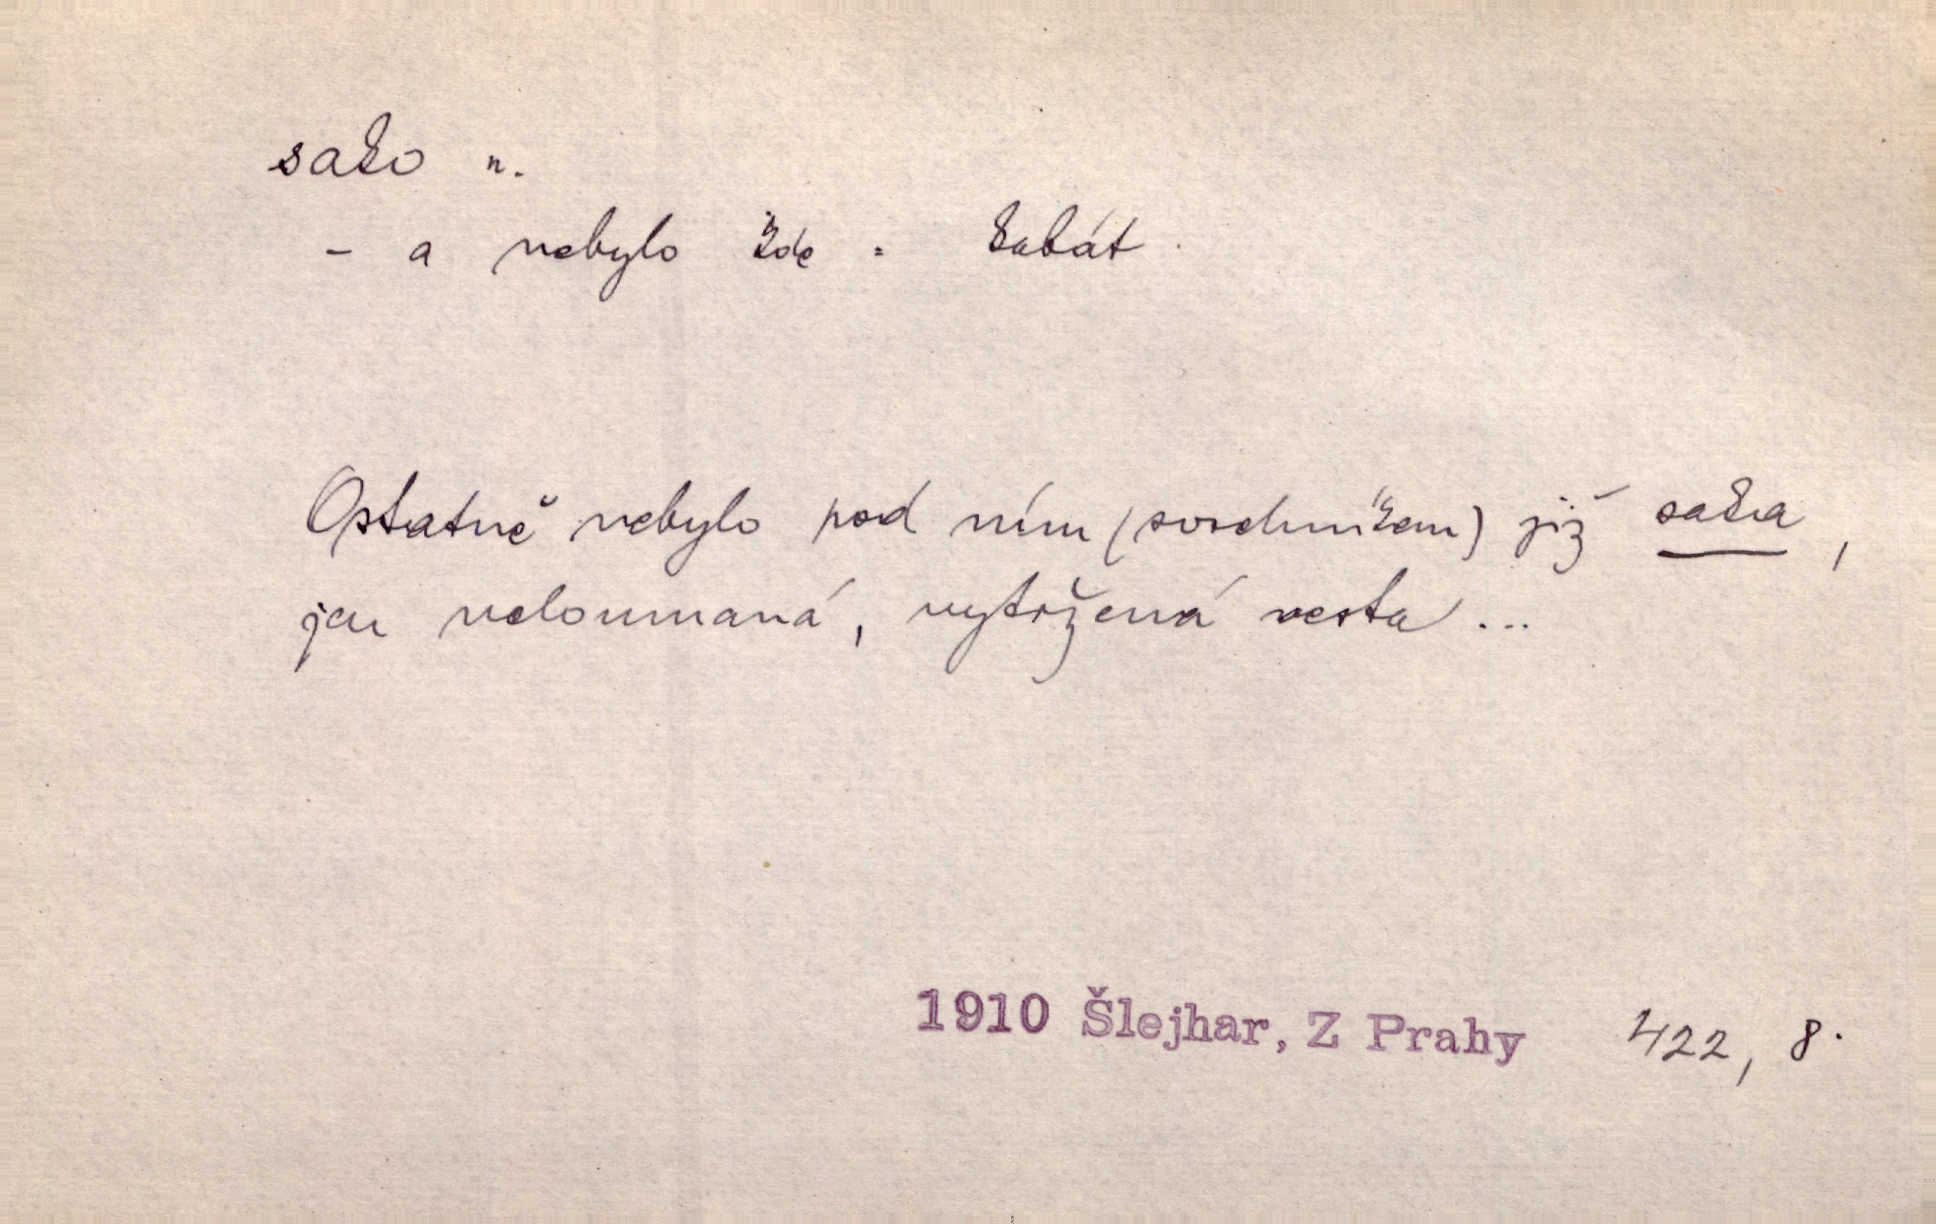 sako n.
- a nebylo zde = kabát.
Ostatně nebylo pod ním (svrchníkem) již saka,
jen neloumaná, vytržená vesta...
1910 Šlejhar, Z Prahy 422, 8.